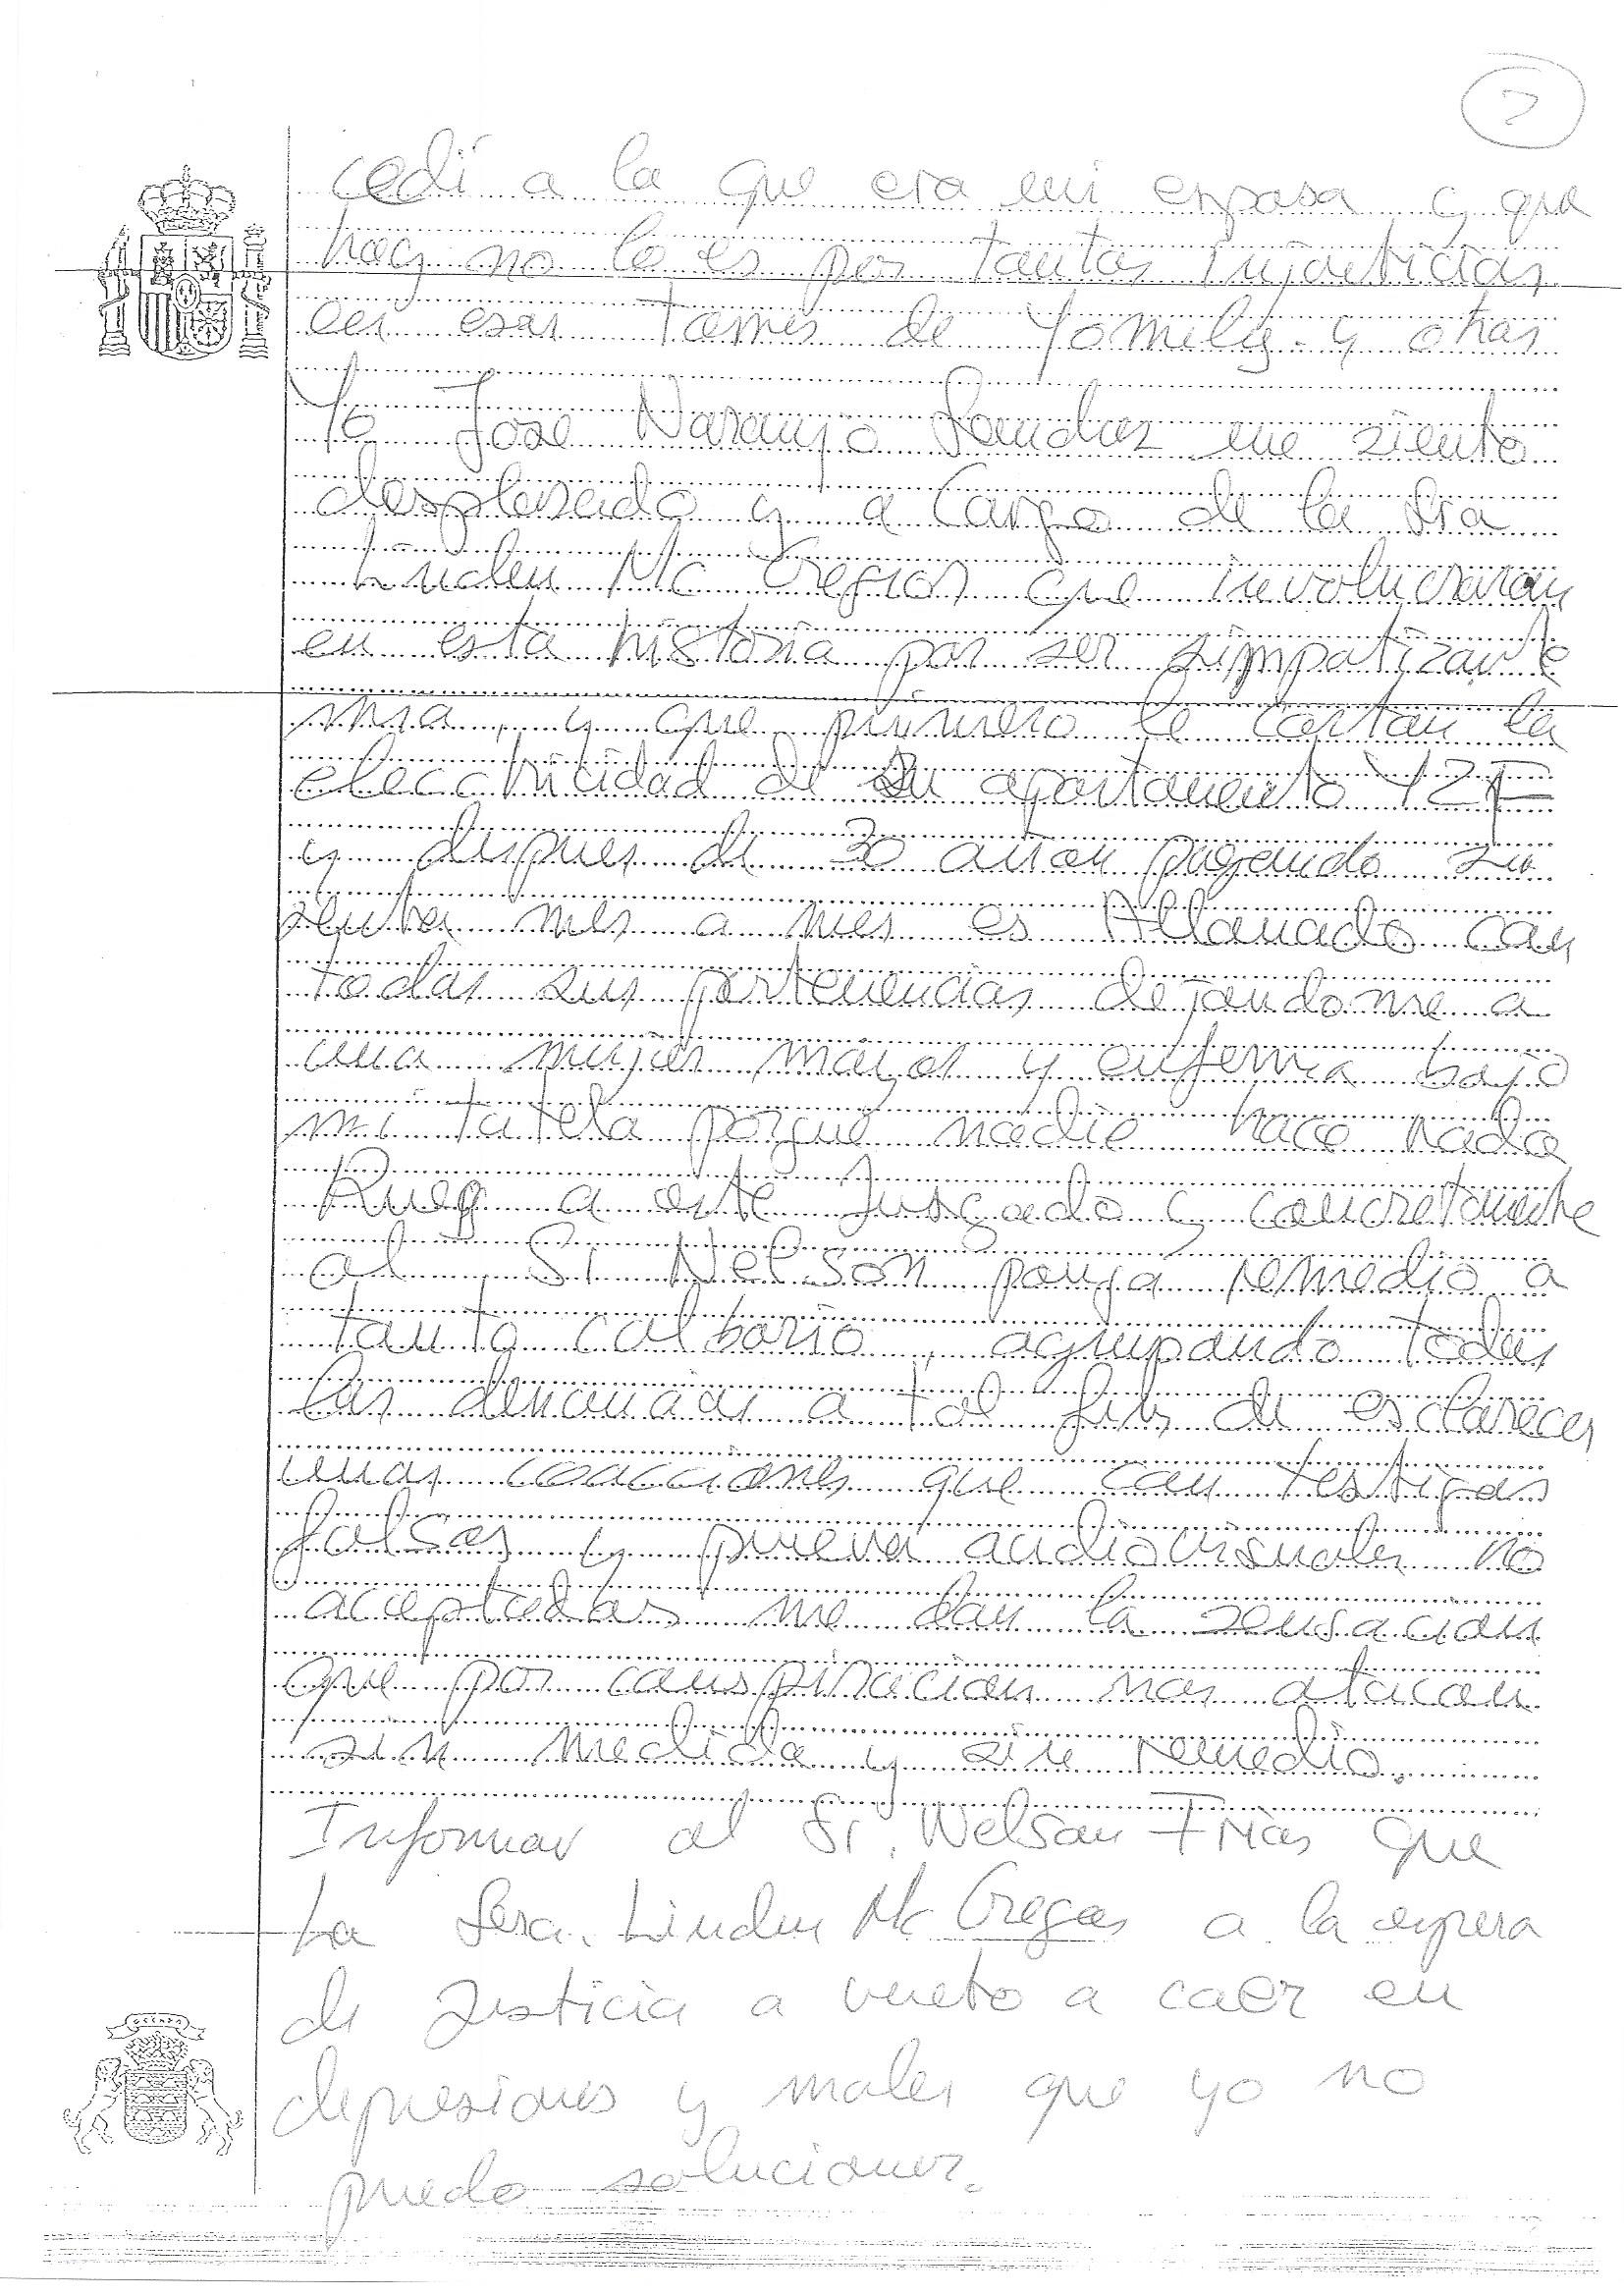 cedi a la que era mi esposa y que
hoy no lo es por tantas injusticias
en esas torres de Yomely y otras
Yo Jose Naranjo Sanchez me siento
desplazado y a cargo de la Sra
Linden Mc Gregor que involucraran
en esta historia por ser simpatizante
mia, y que primero le cortan la
elecctricidad de su apartamento 42F
y despues de 30 años pagando su
renta mes a mes es Allanado con
todas sus pertenencias dejandome a
una mujer mayor y enferma bajo
mi tutela porque nadie hace nada
Ruego a este Jusgado y concretamente
al Sr Nelson ponga remedio a
tanto calbario, agrupando todas
las denuncias a tal fin de esclarecer
unas coacciones que con testigos
falsos y prueva audiovisuales no
aceptadas me dan la sensacion
que por conspiracion nos atacan
sin medida y sin remedio.
Informar al Sr. Nelson Frias que
La Sera. Linden Mc Gregor a la espera
de Justicia a vueto a caer en
depresiones y males que yo no
puedo solucionar.